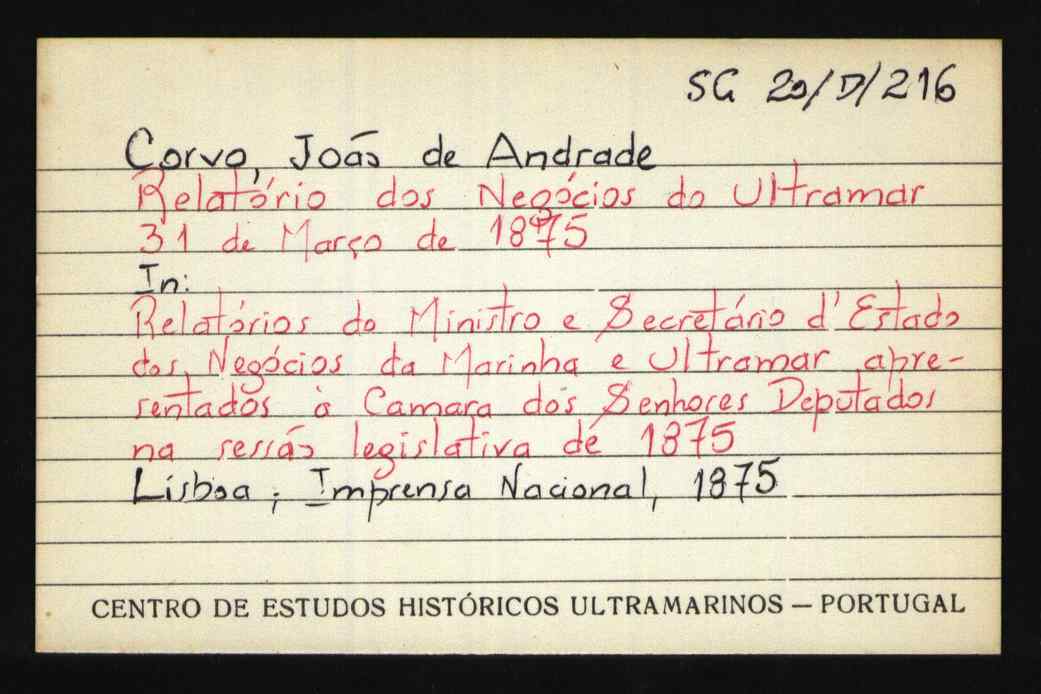 SG 20/D/216
Corvo, João de Andrade
Relatório dos Negócios do Ultramar
31 de Março de 1875
In:
Relatórios do Ministro e Secretário d'Estado
dos Negócios da Marinha e Ultramar apre-
sentados à Camara dos Senhores Deputados
na sessão legislativa de 1875
Lisboa; Imprensa Nacional, 1875
CENTRO DE ESTUDOS HISTÓRICOS ULTRAMARINOS — PORTUGAL